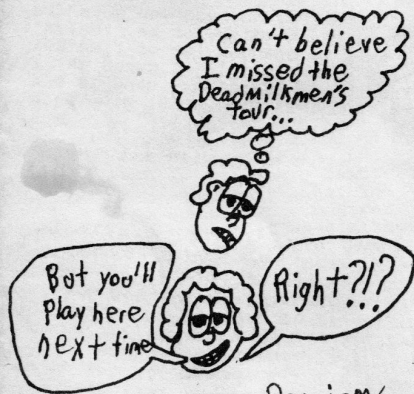 Can't believe
I missed the
Dead Milkmen's
tour...
But you'll
Play here
next time
Right?!?